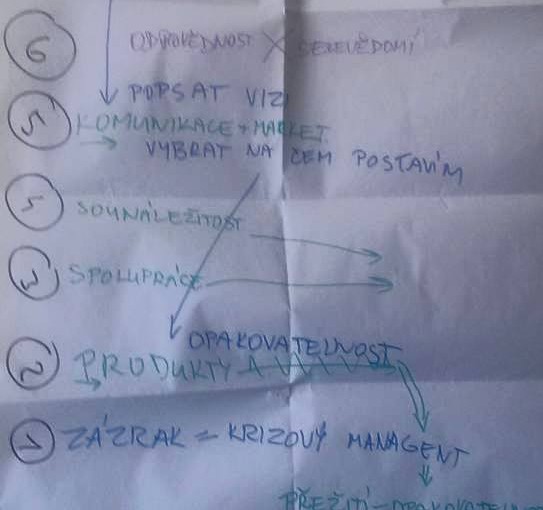 6 ODPOVĚDNOST X SEBEVĚDOMÍ
POPSAT VIZI
5 KOMUNIKACE + MARKET.
VYBRAT NA ČEM POSTAVÍM
SOUNÁLEŽITOST
3 SPOLUPRÁCE
OPAKOVATELNOST
2 PRODUKTY A
1 ZÁZRAK = KRIZOVÝ MANAGENT
PŘEŽITÍ -